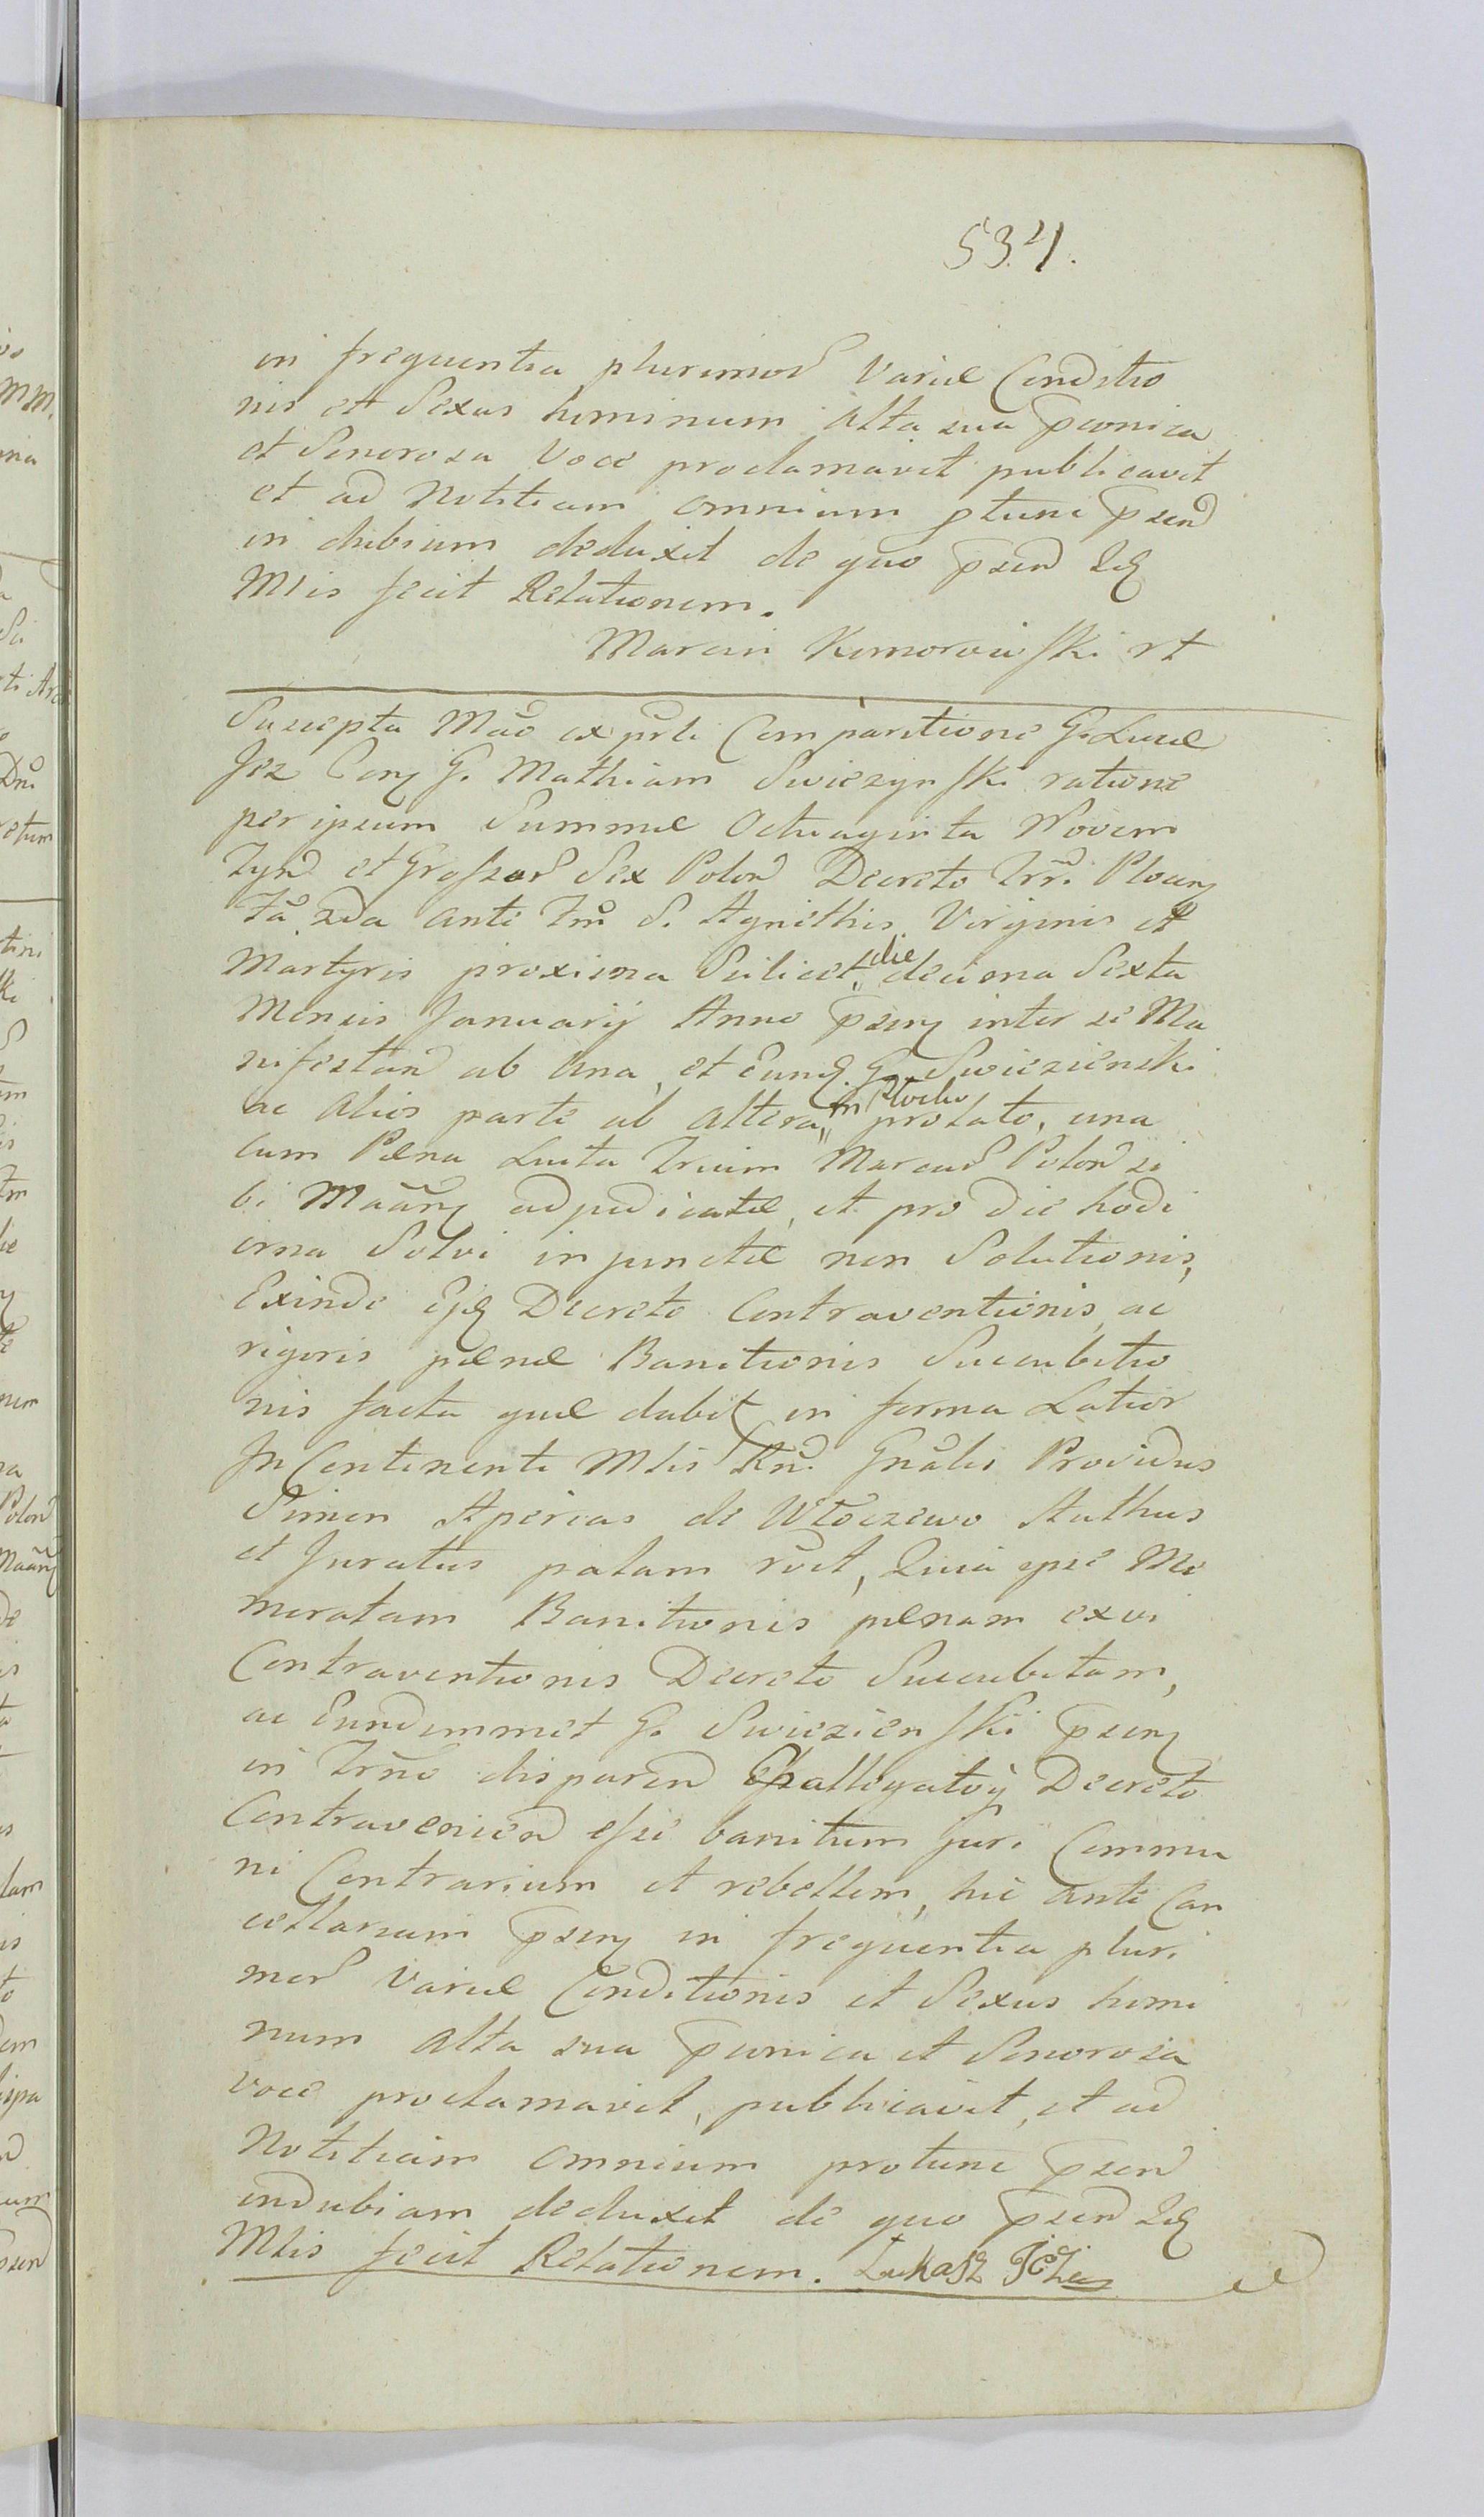 534.
in frequentia plurimor Variæ Conditio
nis et Sexus hominum alta sua p̄conica
et Sonorosa Voce proclamavit publicavit
et ad Notitiam omnium ptunc p̄send
in dubium deduxit de quo p̄send Idq
Mtis fecit Relationem.
Marcin Komorowski rt
Suscepta Mãe ex prti Comparitione G. Lucæ
Jez Conq G. Mathiam Swiezynski ratione
per ipsum Summæ Octuaginta Novem
Tynd et Grossor Sex Polon Decreto Trr̄i Plocen
fã 2da ante Fm S. Agnethis Virginis et
Martyris proxima Scilicet die decima Sexta
Mensis Januarij Anno p̄senq inter se Ma
nifestan ab una, et Eund. G. Swiezienski
ac alios parte ab altera, in Plocko prolato, una
cum Pæna Luita Trium Marcar Polon si
bi Maãnq adjudicatæ, et pro die hodi
erna Solvi injunctæ non Solutionis,
Exinde Ejq Decreto Contraventionis, ac
rigoris pænæ Banitionis Succubitio
nis facta quæ dabit in forma Latior
In Continenti Mtis Rñ. Gnãlis Providus
Simon Apicias de Wloczewo Authus
et Juratus palam rvit, Quia ipse Me
moratam Banitionis pænam ex vi
Contraventionis Decreto Succubitam,
ac Eundemmet G. Swiezienski p̄senq
in Trño disparend allegatoq Decreto
Contravenien esse banitum Juri Commu
ni Contrarium et rebellem, hic ante Can
cellariam p̄senq in frequentia pluri
mor Variæ Conditionis et Sexus homi
num alta sua p̄conica et Sonorosa
voce proclamavit, publicavit, et ad
Notitiam omnium protunc p̄send
indubiam deduxit de quo p̄send Idq
Mtis fecit Relationem. Lukasz Jeż